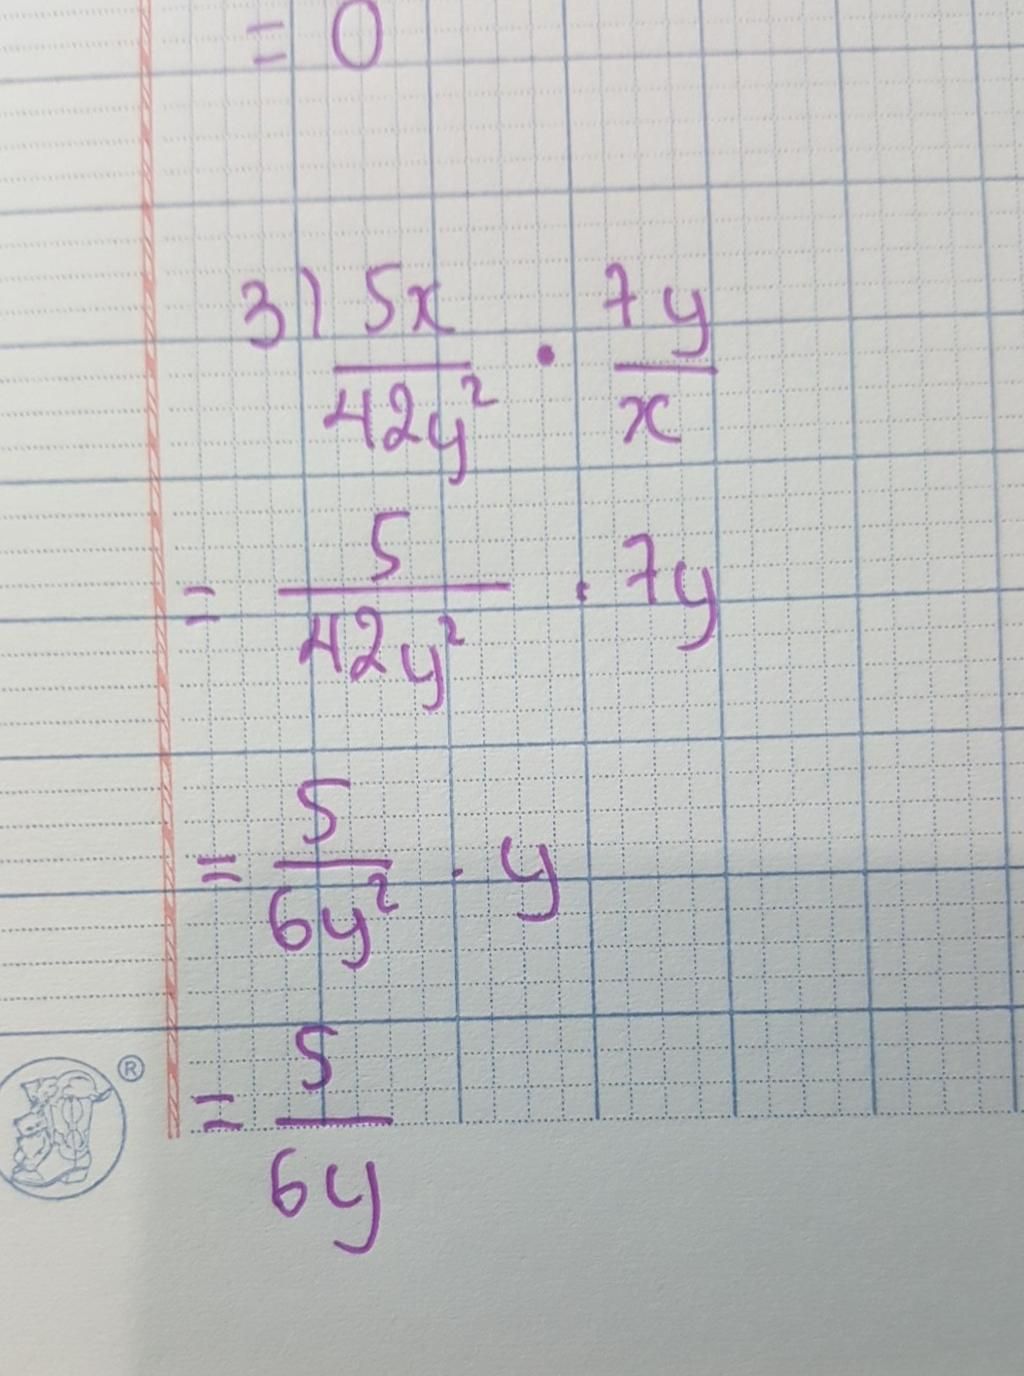 = 0
3) 5x/42y² · 7y/x
= 5/42y² · 7y
= 5/6y² · y
= 5/6y
®